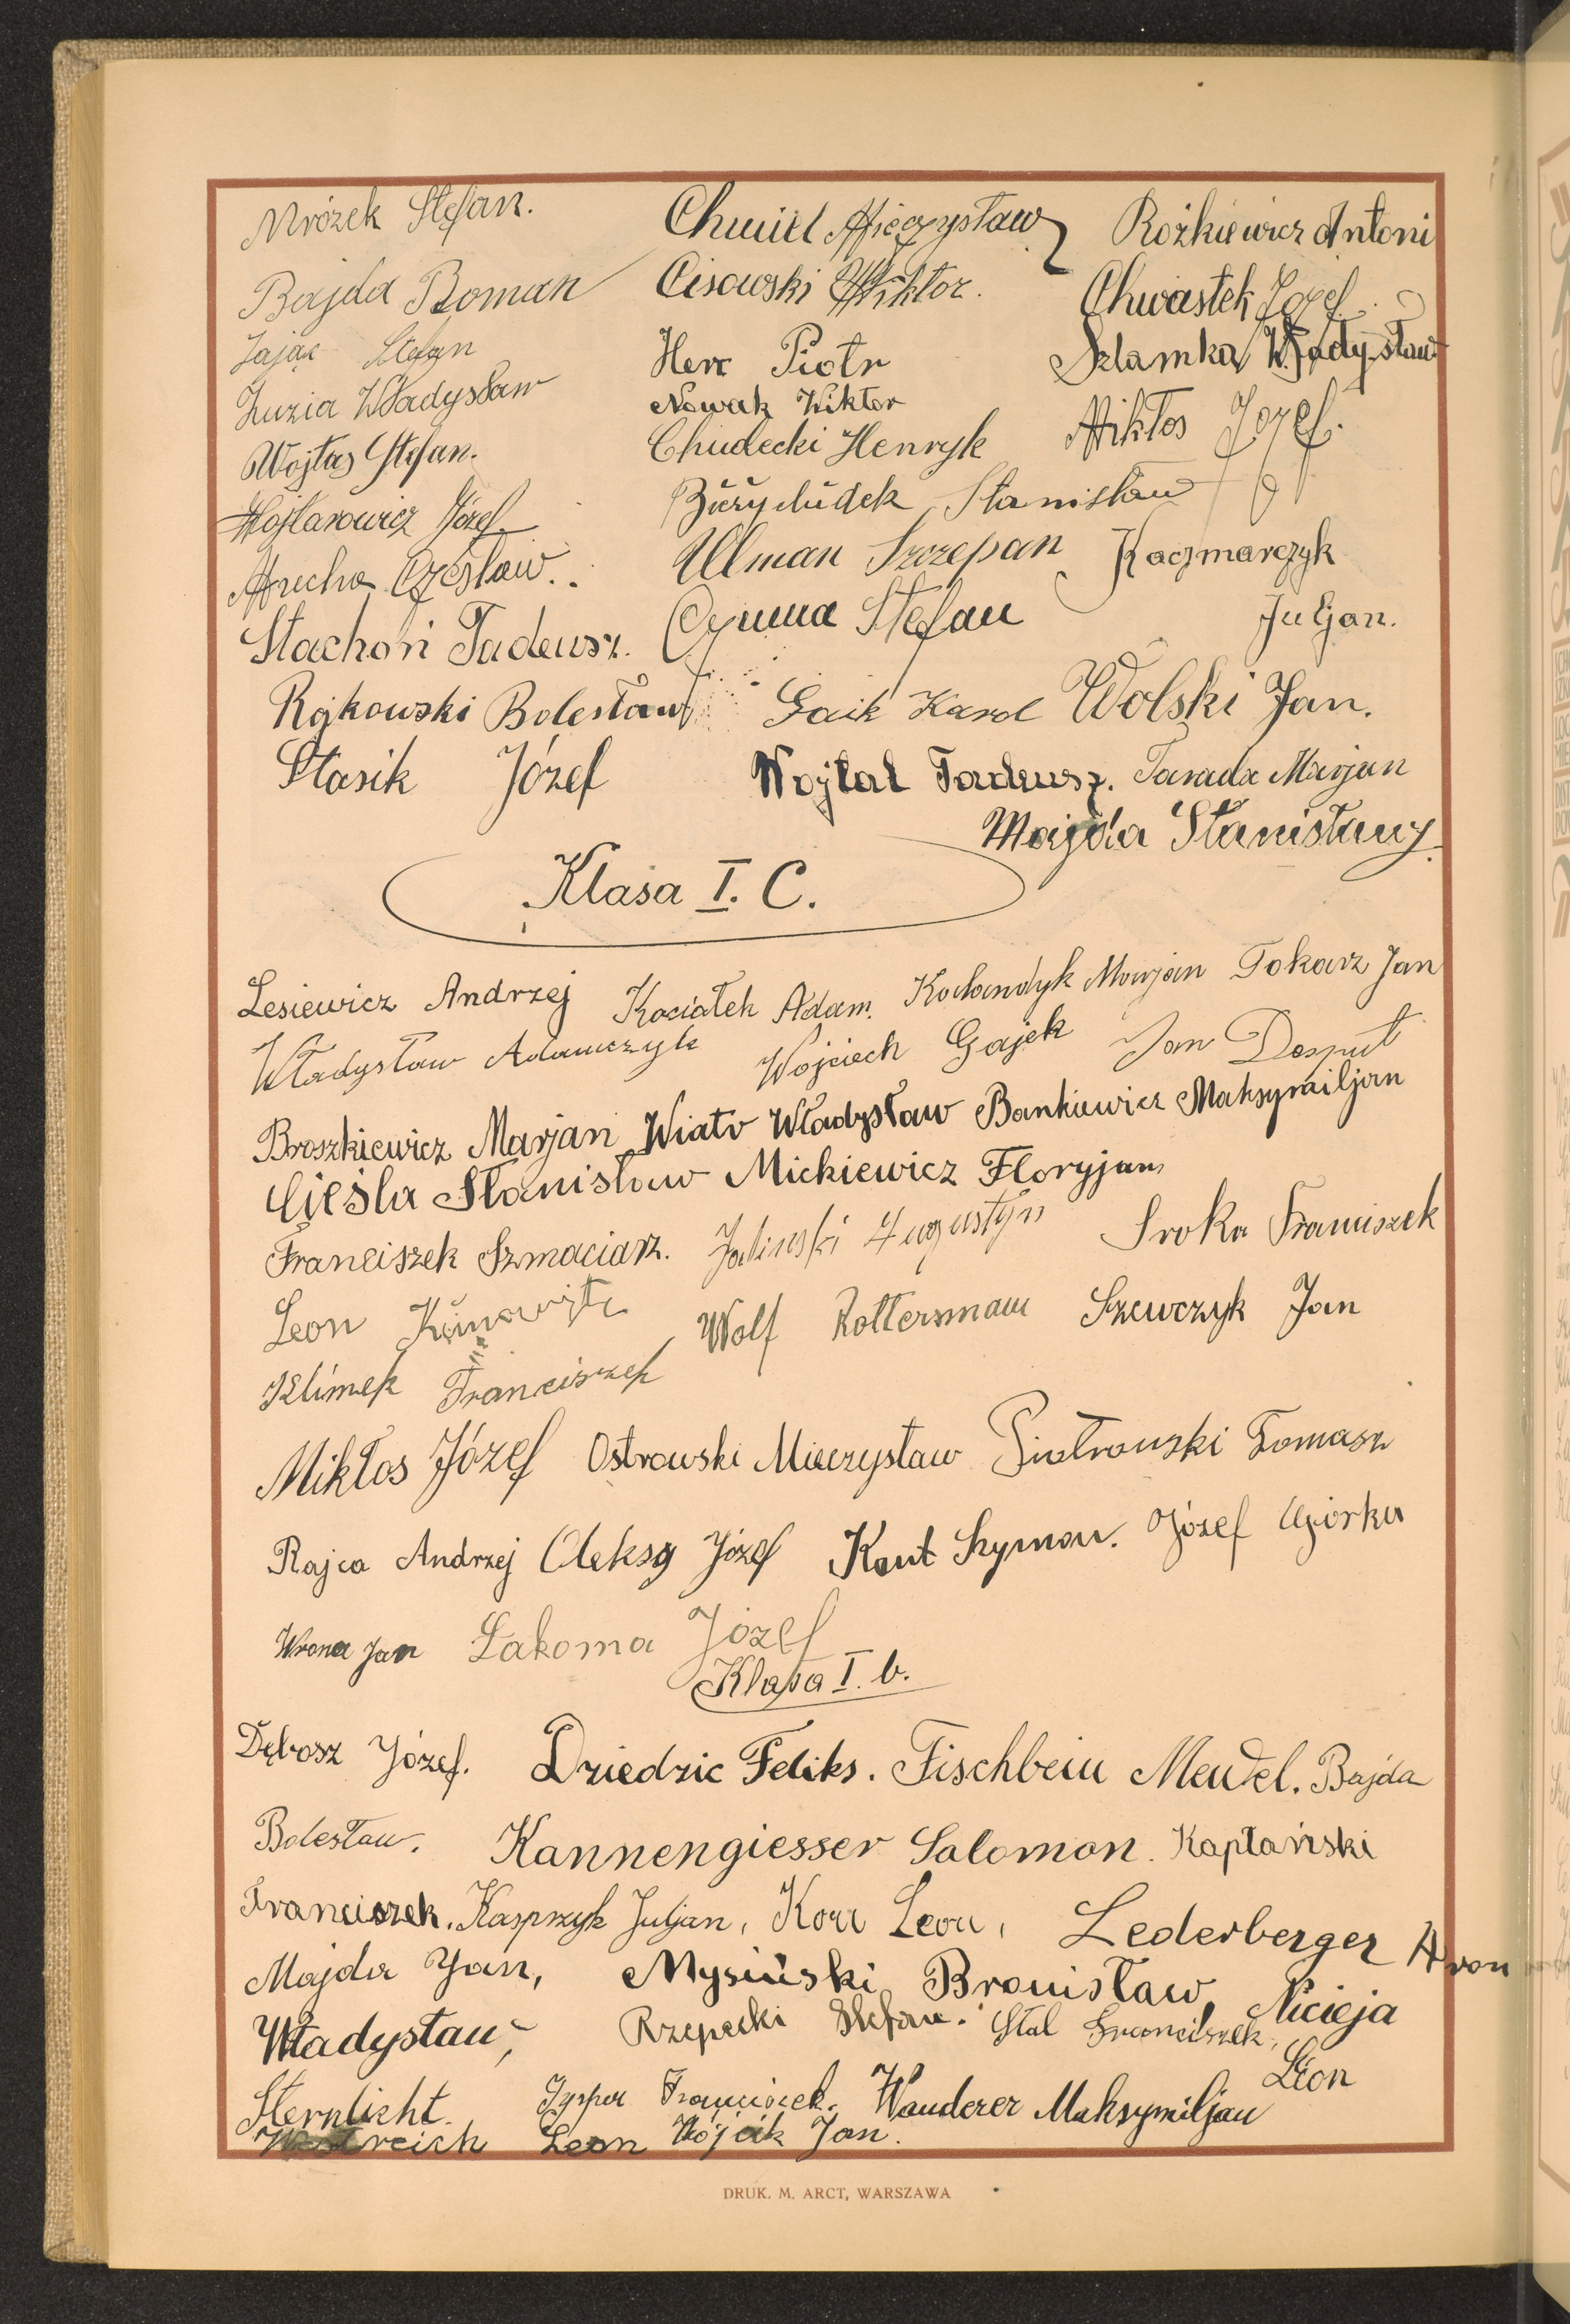 Mrózek Stefan. Chmiel Mieczysław Rożkiewicz Antoni
Bajda Roman Cisowski Wiktor. Chwastek Józef.
Zając Stefan Herc Piotr Szlamka Władysław
Zuzia Władysław Nowak Wiktor
Wojtas Stefan. Chudecki Henryk Mikłos Józef.
Wojtarowicz Józef Stanisław
Mucha Czesław. Ulman Szczepan Kaczmarczyk
Stachoń Tadeusz. Czuma Stefan Juljan.
Rajkowski Bolesław Gaik Karol Wolski Jan.
Stasik Józef Wojtal Tadeusz. Tarada Marjan
Majda Stanisławy.
Klasa I. C.
Lesiewicz Andrzej Kociołek Adam. Marjan Tokarz Jan
Władysław Adamczyk Wojciech Gajek Jan Desput
Broszkiewicz Marjan Wiatr Władysław Bankiewicz Maksymiljan
Cieśla Stanisław Mickiewicz Floryjan
Franciszek Szmaciarz. Jaliński Augustyn Sroka Franciszek
Leon Wolf Rottersmann Szewczyk Jan
Klimek Franciszek
Mikłos Józef Ostrowski Mieczysław Piotrowski Tomasz
Rajca Andrzej Oleksy Józef Kant Szymon. Józef Ogórka
Wrona Jan Łakoma Józef
Klasa I. b.
Dębosz Józef. Dziedzic Feliks. Fischbein Mendel. Bajda
Bolesław. Kannengiesser Salomon. Kaptański
Franciszek. Kasprzyk Juljan, Korn Leon, Lederberger Aron
Majda Jan, Mysiński Bronisław, Nicieja
Władysław, Rzepecki Stefan. Stal Franciszek,
Leon
Sternlicht. Franciszek. Wanderer Maksymiljan
Westreich Leon Wójcik Jan.
DRUK. M. ARCT, WARSZAWA